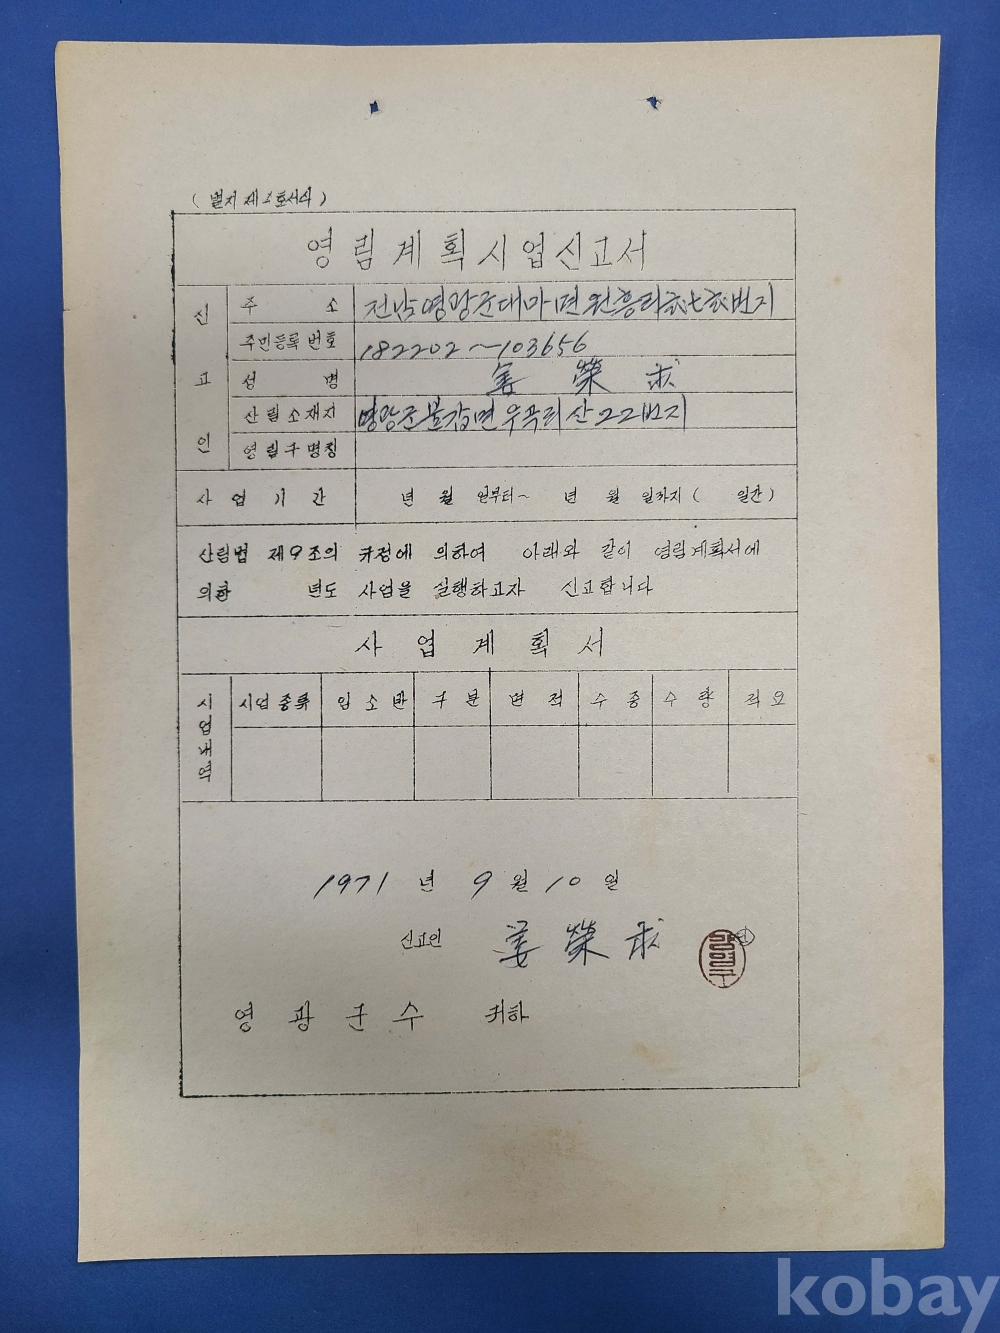 (별지 제 호서식)
영림계획사업신고서
신고인
주 소 전남영광군대마면원흥리 번지
주민등록번호 182202~103656
성 명 姜 榮
산림소재지 영광군불갑면우곡리산22번지
영림구명칭
사업기간 년 월 일부터~ 년 월 일까지( 일간)
산림법 제9조의 규정에 의하여 아래와 같이 영림계획서에
의한 년도 사업을 실행하고자 신고합니다
사업계획서
사업내역
사업종류 임소반 구분 면적 수종 수량 적요
1971 년 9 월 10 일
신고인 姜 榮 인
영광군수 귀하
kobay